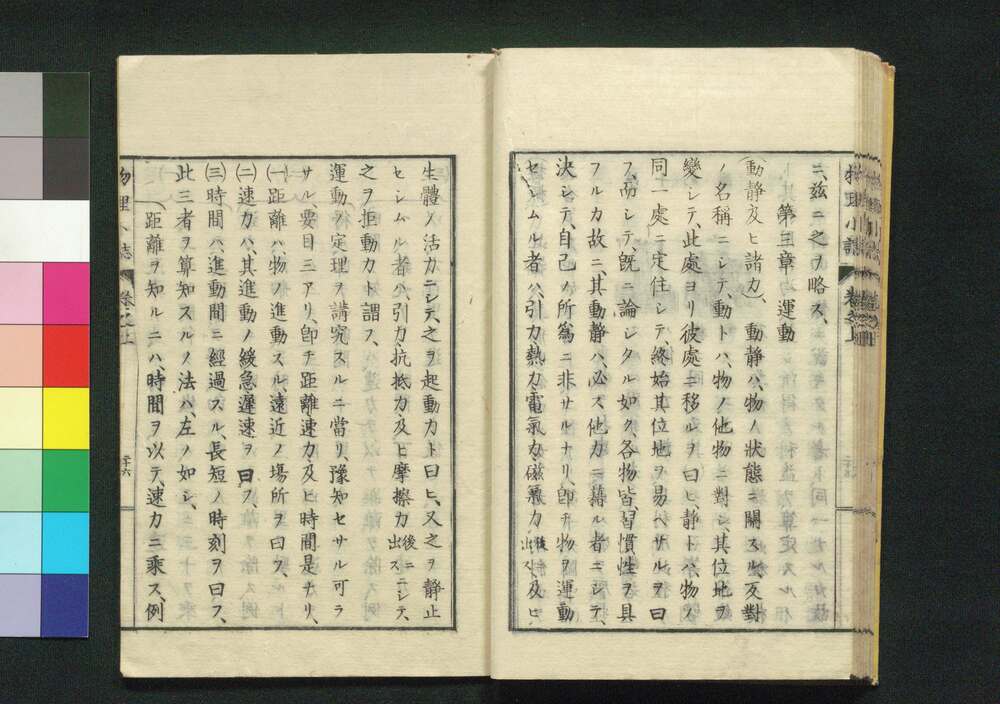 ニ、茲ニ之ヲ略ス、
第三章 運動
(動静及ヒ諸力)、 動静ハ、物ノ状態ニ關スル、反對
ノ名稱ニシテ、動トハ、物ノ他物ニ對シ、其位地ヲ
變シテ、此處ヨリ彼處ニ移ルヲ曰ヒ、静トハ、物ノ
同一處ニ定住シテ、終始其位地ヲ易ヘサルヲ曰
フ、而シテ、既ニ論シタル如ク、各物皆、習慣性ヲ具
フルカ故ニ、其動静ハ、必ス他力ニ藉ル者ニシテ、
決シテ、自己ノ所為ニ非サルナリ、即チ物ヲ運動
セシムル者ハ、引力、熱力、電氣力、磁氣力 後ニ出ス、及ヒ、
物理小誌 巻之上
生體ノ活力ニシテ、之ヲ起動力ト曰ヒ、又之ヲ静止
セシムル者ハ、引力、抗抵力、及ヒ摩擦力 後ニ出ス ニシテ、
之ヲ拒動力ト謂フ、
運動ノ定理ヲ講究スルニ當リ、豫知セサル可ラ
サル、要目三アリ、卽チ距離速力及ヒ時間是ナリ、
(一)距離ハ、物ノ進動スル、遠近ノ場所ヲ曰フ、
(二)速力ハ、其進動ノ緩急遲速ヲ曰フ、
(三)時間ハ、進動間ニ經過スル、長短ノ時刻ヲ曰フ、
此三者ヲ算知スルノ法ハ、左ノ如シ、
距離ヲ知ルニハ、時間ヲ以テ、速力ニ乘ス、例
物理小誌 巻之上 二十六